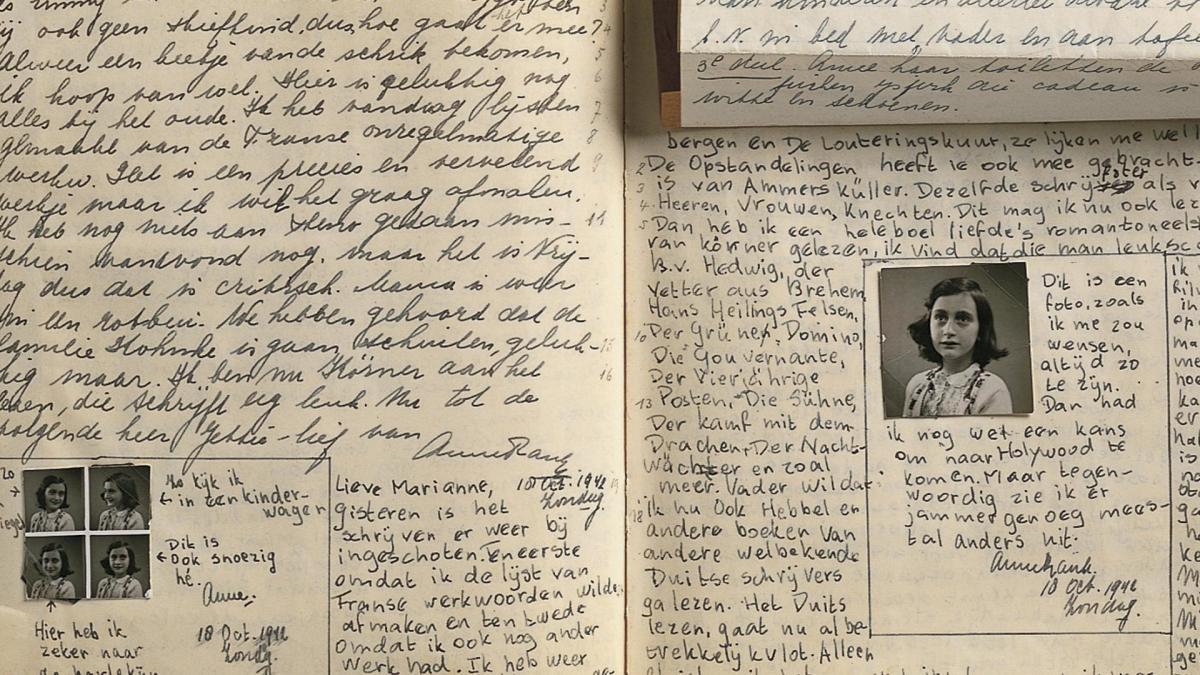 ij ook geen stiefkind, dus hoe gaat het er mee? 4
Alweer een beetje van de schrik bekomen, 5
ik hoop van wel. Hier is gelukkig nog 6
alles bij het oude. Ik heb vandaag lijsten 7
gemaakt van de Franse onregelmatige 8
werkw. Het is een precies en vervelend 9
werkje maar ik wil het graag afmaken.
Ik heb nog niets aan Steno gedaan mis- 11
schien vanavond nog, maar het is Vrij-
dag dus dat is critisch. Mama is weer
in een
We hebben gehoord dat de
familie is gaan schuilen, geluk- 15
kig maar. Ik ben nu Körner aan het 16
lezen, die schrijft erg leuk. Nu tot de
volgende keer Jettie-lief van
Anne Frank
Zo kijk ik
← in een kinder-
wagen
Dit is
← ook snoezig
hé.
Anne.
Hier heb ik
zeker naar
18 Oct. 1942
Zondag.
Lieve Marianne,
10 Oct. 1942
Zondag.
gisteren is het
schrijven er weer bij
ingeschoten. Ten eerste
omdat ik de lijst van
Franse werkwoorden wilde
afmaken en ten twede
omdat ik ook nog ander
werk had. Ik heb weer
b.v. in bed met Vader en aan tafel
3e deel. Anne haar toiletten de
witte en schoenen.
bergen en De Louteringskuur, ze lijken me wel
2 De Opstandelingen heeft ie ook mee gebracht-
3 is van Ammers Küller. Dezelfde schrijfster als v
4 Heeren, Vrouwen, Knechten. Dit mag ik nu ook lez
5 Dan heb ik een heleboel liefde's romantoneels
van körner gelezen, ik vind dat die man leuk sc
B.v. Hedwig, der
Vetter aus Brehem
Hans Heilings Felsen,
10 Der Grünen Domino,
Die Gouvernante,
Der Vierjährige
13 Posten, Die Sühne,
Der Kampf mit dem
Drachen, Der Nacht-
wächter en zoal
meer. Vader wil dat
18 ik nu ook Hebbel en
andere boeken van
andere welbekende
Duitse schrijvers
ga lezen. Het Duits
lezen, gaat nu al be-
trekkelijk vlot. Alleen
Dit is een
foto, zoals
ik me zou
wensen,
altijd zo
te zijn.
Dan had
ik nog wel een kans
om naar Holywood te
komen. Maar tegen-
woordig zie ik er
jammer genoeg mees-
tal anders uit.
Anne Frank.
18 Oct. 1942
Zondag.